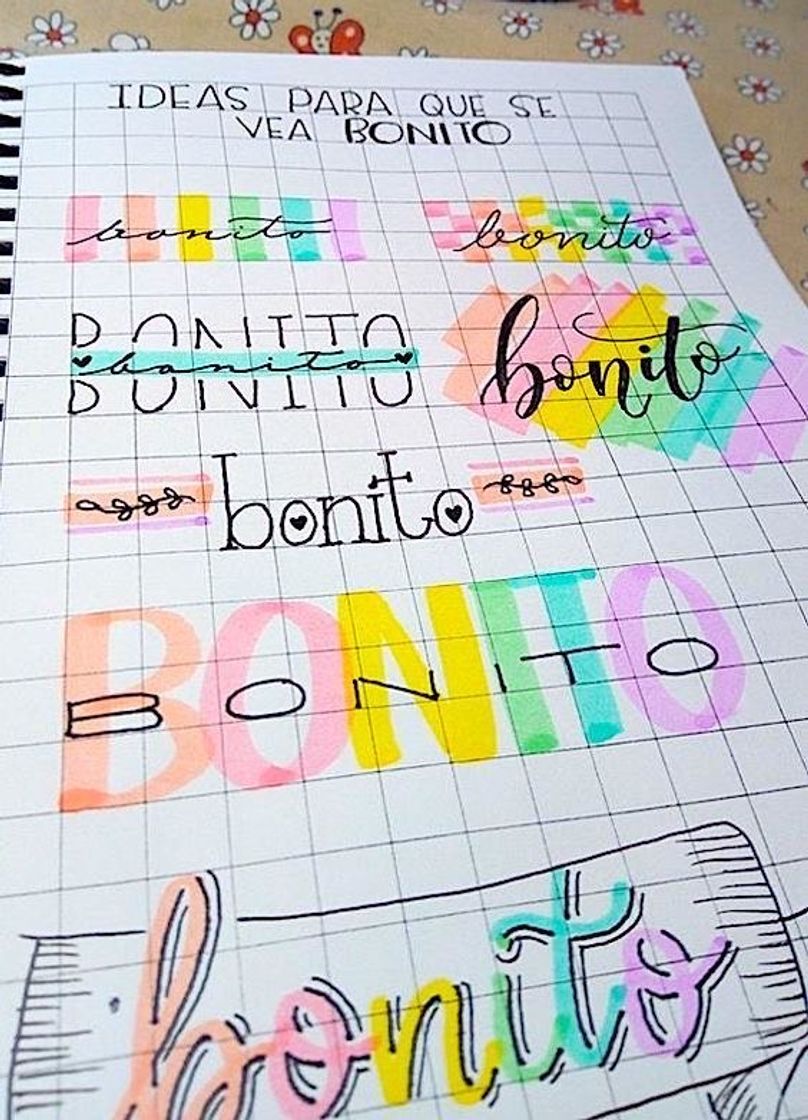 IDEAS PARA QUE SE
VEA BONITO
bonito
bonito
BONITO
bonito
bonito
bonito
BONITO
BONITO
bonito